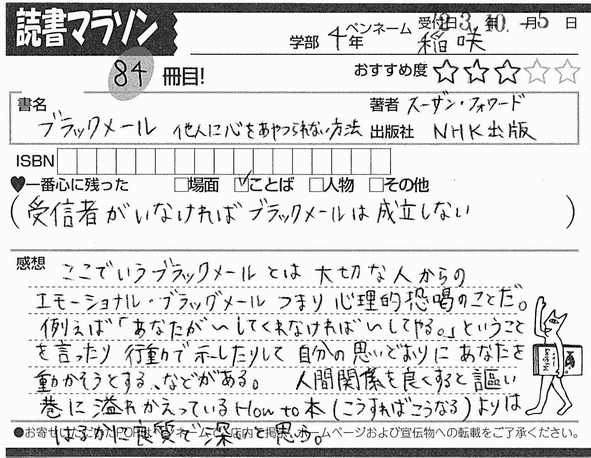 読書マラソン
学部 4年 ペンネーム 稲咲 受付日 23年 10月 5日
84 冊目! おすすめ度 ☆☆☆☆☆
書名 ブラックメール 他人に心をあやつられない方法
著者 スーザン・フォワード
出版社 NHK出版
ISBN
♥一番心に残った □場面 ☑ことば □人物 □その他
(受信者がいなければブラックメールは成立しない)
感想
ここでいうブラックメールとは 大切な人からの
エモーショナル・ブラックメール つまり 心理的恐喝のことだ。
例えば「あなたが〜してくれなければ〜してやる。」ということ
を言ったり 行動で示したりして 自分の思いどおりに あなたを
動かそうとする、などがある。 人間関係を良くすると謳い
巷に溢れかえっているHow to本(こうすればこうなる)よりは
はるかに良質で深いと思う。
●お寄せいただいたPOPは、ペンネームで店内で掲示、ホームページおよび宣伝物への転載をご了承ください。